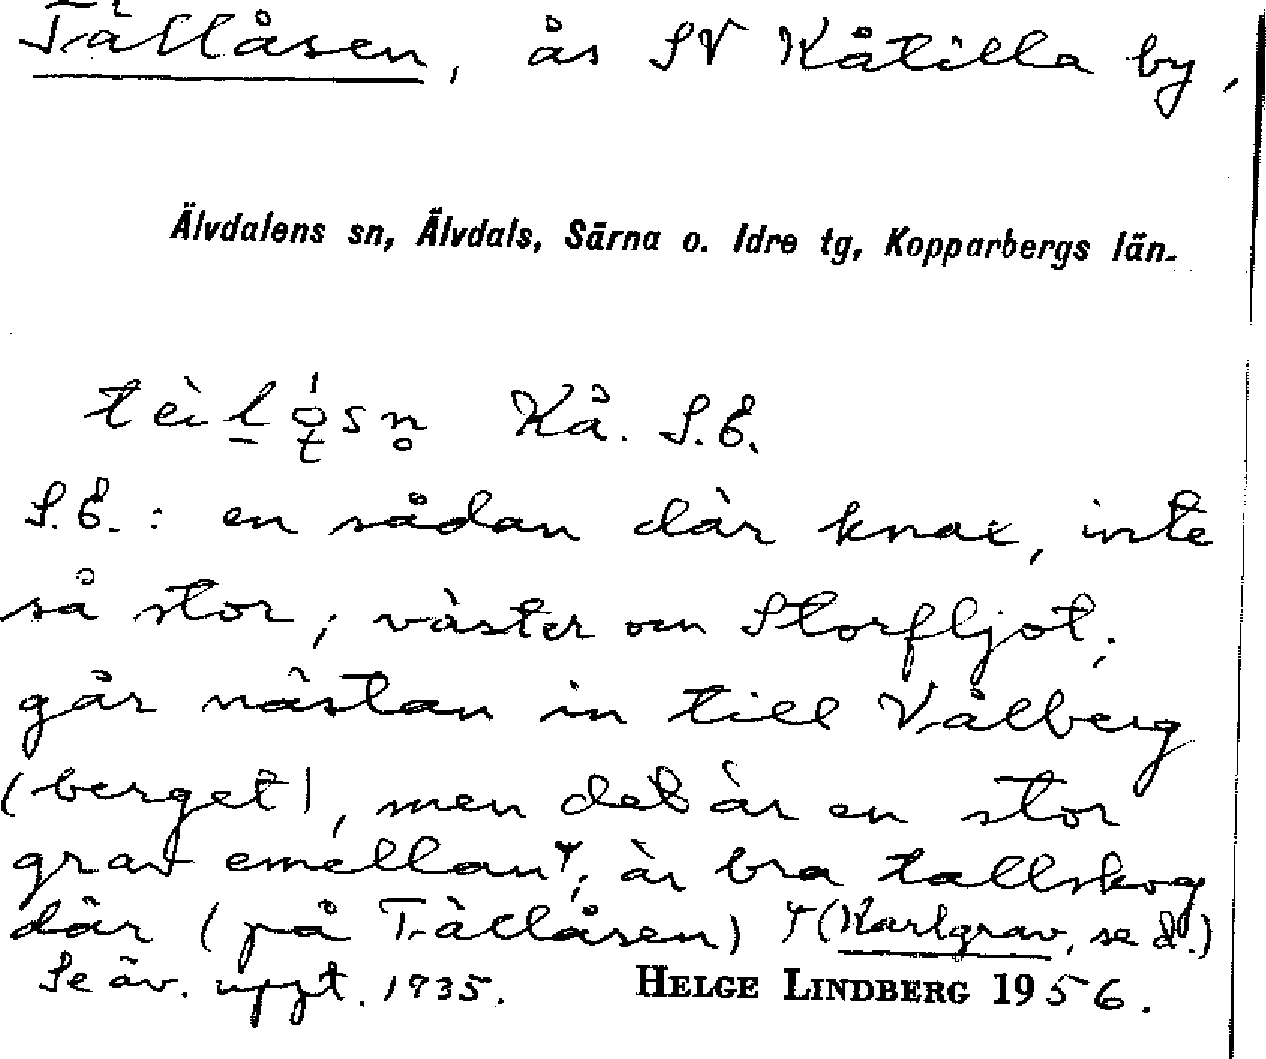 Tällåsen, ås SV Kåtilla by,
Älvdalens sn, Älvdals, Särna o. Idre tg, Kopparbergs län.
Kå. S.E.
S.E.: en sådan där knax, inte
så stor; väster om Storfljot;
går nästan in till Vålberg
(berget), men det är en stor
grav emellan; är bra tallskog
där (på Tällåsen) (Karlgrav, se d.)
Se äv. uppt. 1935. HELGE LINDBERG 1956.